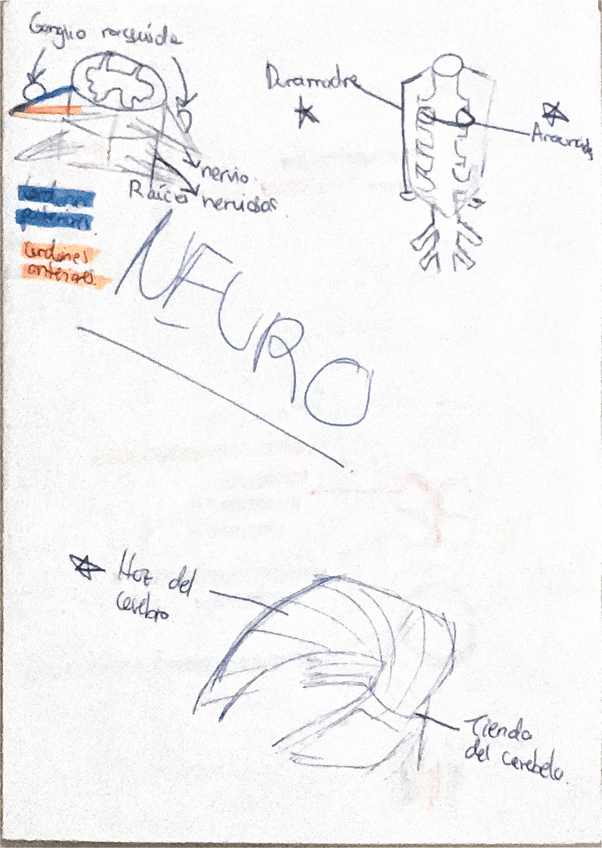 Ganglio raquídeo
nervio
Raíces nerviosas
cordones
posteriores
cordones
anteriores
Duramadre
Aracnoides
NEURO
Hoz del
cerebro
Tienda
del cerebelo.